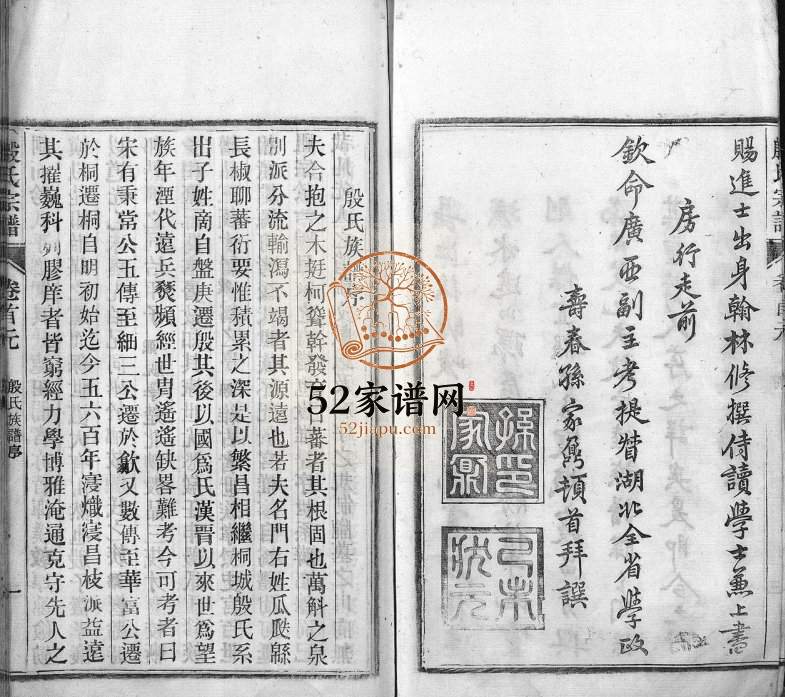 賜進士出身翰林修撰侍讀學士兼上書
房行走前
欽命廣西副主考提督湖北全省學政
壽春孫家鼐頓首拜譔
孫印家鼐
己未狀元
殷氏宗譜
卷首元
殷氏族譜序
夫合抱之木挺柯聳幹發
蕃者其根固也萬斛之泉
別派分流輸瀉不竭者其源遠也若夫名門右姓瓜瓞緜
長椒聊蕃衍要惟積累之深是以繁昌相繼桐城殷氏系
出子姓商自盤庚遷殷其後以國爲氏漢晉以來世爲望
族年湮代遠兵燹頻經世胄遙遙缺畧難考今可考者曰
宋有秉常公五傳至細三公遷於歙又數傳至華富公遷
於桐遷桐自明初始迄今五六百年寖熾寖昌枝派益遠
其擢巍科列膠庠者皆窮經力學博雅淹通克守先人之
殷氏宗譜
卷首元
殷氏族譜序
一
52家谱网
52jiapu.com